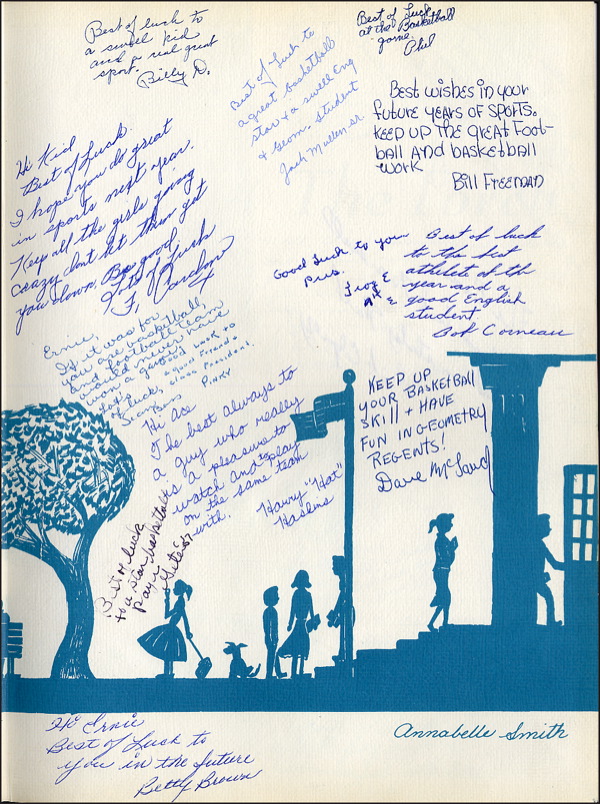 Best of luck to
a swell kid
and a real great
sport.
Billy D.
Best of Luck to
a great basketball
star & a swell Eng
& Geom. student
Jack Mullen sr.
Best of Luck
at the Basketball
game.
Phil
Best wishes in your
future years of sports.
KEEP UP THE GREAT FOOT-
ball AND basketball
work
Bill FREEMAN
Hi Kid
Best of Luck.
I hope you do great
in sports next year.
Keep all the girls going
crazy dont let them get
you down. Be good,
Lots of Luck
Good Luck to you
Best of luck
to the best
athlete of the
year and a
good English
student
Bob Corneau
Ernie,
If it was for
you are basketball
and football team
would never have
won a game
Lots of luck,
good luck to
a good friend &
class President.
Pinky
Hi Ace
The best always to
a guy who really
is a pleasure to
watch and to play
on the same team
with.
Harry "Hat"
Haskins
KEEP UP
YOUR BASKETBALL
SKILL + HAVE
FUN IN GEOMETRY
REGENTS!
Dave
Best of luck
to a star basketballer
Hi Ernie
Best of Luck to
you in the future
Betty Brown
Annabelle Smith